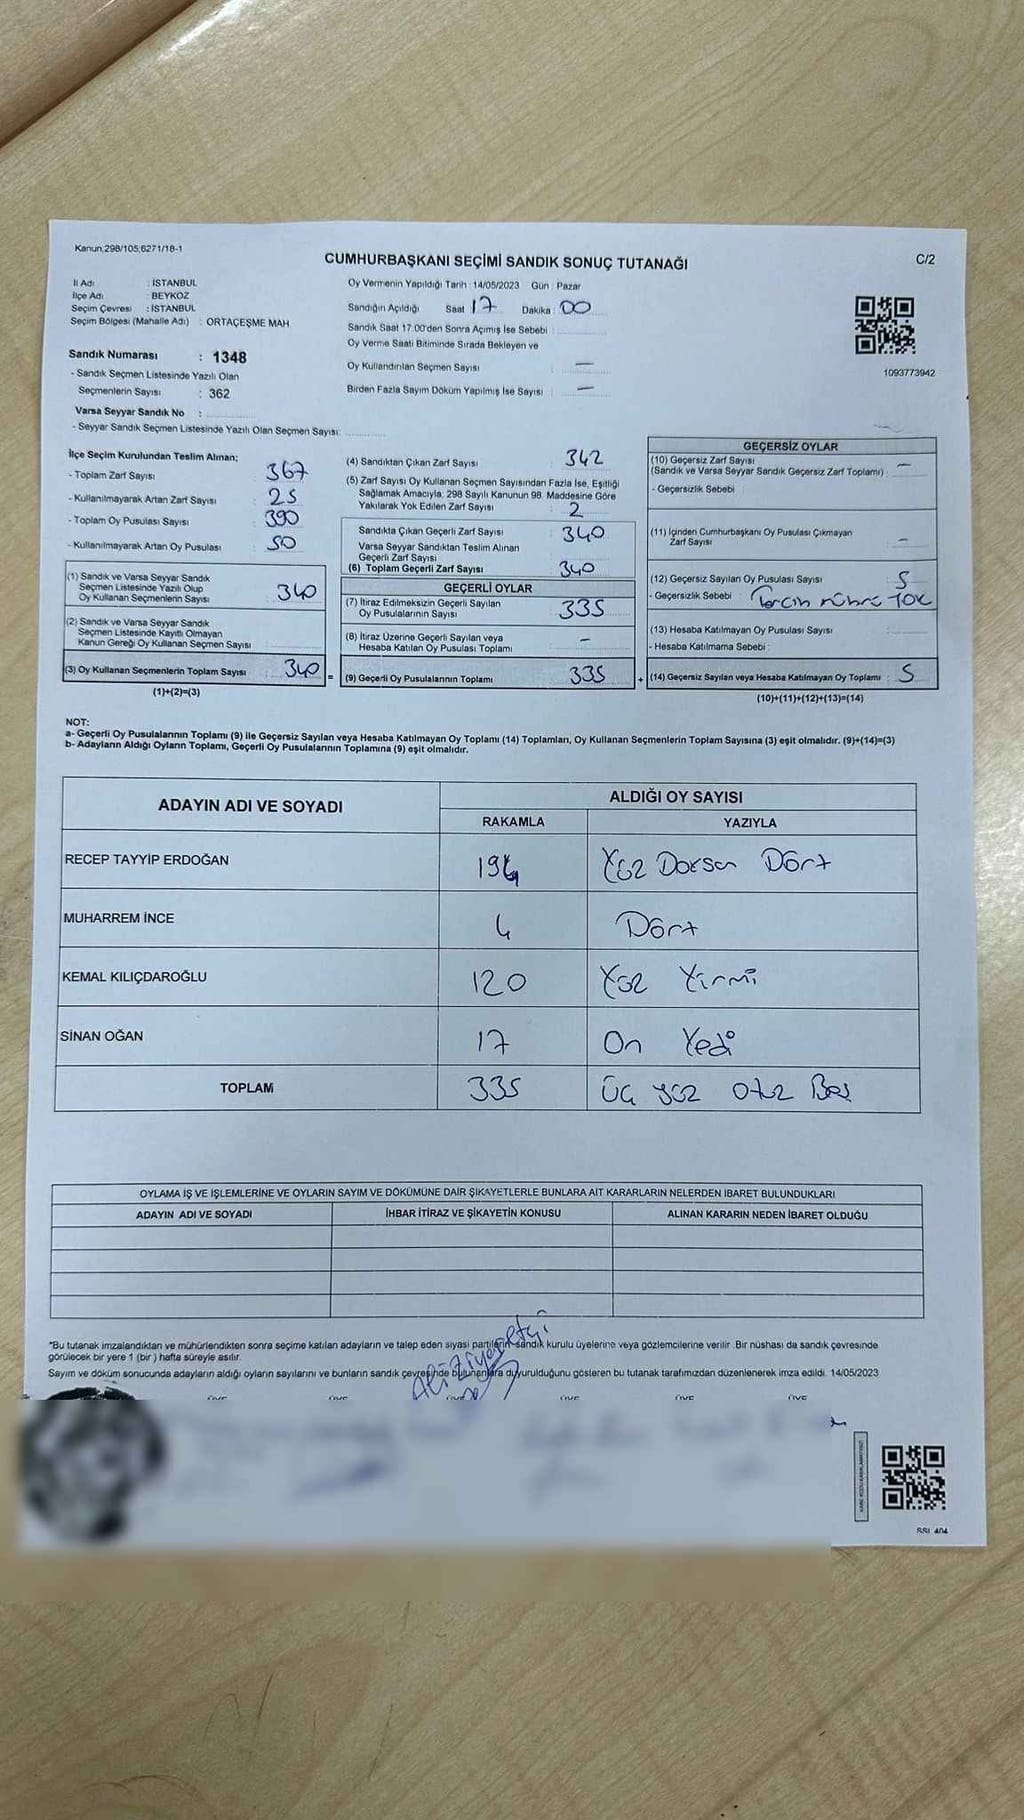 Kanun;298/105;6271/18-1
CUMHURBAŞKANI SEÇİMİ SANDIK SONUÇ TUTANAĞI
C/2
İl Adı : İSTANBUL
İlçe Adı : BEYKOZ
Seçim Çevresi : İSTANBUL
Seçim Bölgesi (Mahalle Adı) : ORTAÇEŞME MAH
Sandık Numarası : 1348
- Sandık Seçmen Listesinde Yazılı Olan
Seçmenlerin Sayısı : 362
Varsa Seyyar Sandık No :
- Seyyar Sandık Seçmen Listesinde Yazılı Olan Seçmen Sayısı:
Oy Vermenin Yapıldığı Tarih : 14/05/2023 Gün : Pazar
Sandığın Açıldığı Saat 17 Dakika : 00
Sandık Saat 17:00'den Sonra Açımış İse Sebebi :
Oy Verme Saati Bitiminde Sırada Bekleyen ve
Oy Kullandırılan Seçmen Sayısı : —
Birden Fazla Sayım Döküm Yapılmış İse Sayısı : —
1093773942
İlçe Seçim Kurulundan Teslim Alınan;
- Toplam Zarf Sayısı : 367
- Kullanılmayarak Artan Zarf Sayısı : 25
- Toplam Oy Pusulası Sayısı : 390
- Kullanılmayarak Artan Oy Pusulası : 50
(1) Sandık ve Varsa Seyyar Sandık
Seçmen Listesinde Yazılı Olup
Oy Kullanan Seçmenlerin Sayısı : 340
(2) Sandık ve Varsa Seyyar Sandık
Seçmen Listesinde Kayıtlı Olmayan
Kanun Gereği Oy Kullanan Seçmen Sayısı :
(3) Oy Kullanan Seçmenlerin Toplam Sayısı : 340
(1)+(2)=(3)
=
(4) Sandıktan Çıkan Zarf Sayısı : 342
(5) Zarf Sayısı Oy Kullanan Seçmen Sayısından Fazla İse, Eşitliği
Sağlamak Amacıyla; 298 Sayılı Kanunun 98. Maddesine Göre
Yakılarak Yok Edilen Zarf Sayısı : 2
Sandıkta Çıkan Geçerli Zarf Sayısı : 340
Varsa Seyyar Sandıktan Teslim Alınan
Geçerli Zarf Sayısı :
(6) Toplam Geçerli Zarf Sayısı : 340
GEÇERLİ OYLAR
(7) İtiraz Edilmeksizin Geçerli Sayılan
Oy Pusulalarının Sayısı : 335
(8) İtiraz Üzerine Geçerli Sayılan veya
Hesaba Katılan Oy Pusulası Toplamı : —
(9) Geçerli Oy Pusulalarının Toplamı : 335
+
GEÇERSİZ OYLAR
(10) Geçersiz Zarf Sayısı
(Sandık ve Varsa Seyyar Sandık Geçersiz Zarf Toplamı) : —
- Geçersizlik Sebebi :
(11) İçinden Cumhurbaşkanı Oy Pusulası Çıkmayan
Zarf Sayısı : —
(12) Geçersiz Sayılan Oy Pusulası Sayısı : 5
- Geçersizlik Sebebi : Tercih mührü YOK
(13) Hesaba Katılmayan Oy Pusulası Sayısı :
- Hesaba Katılmama Sebebi :
(14) Geçersiz Sayılan veya Hesaba Katılmayan Oy Toplamı : 5
(10)+(11)+(12)+(13)=(14)
NOT:
a- Geçerli Oy Pusulalarının Toplamı (9) ile Geçersiz Sayılan veya Hesaba Katılmayan Oy Toplamı (14) Toplamları, Oy Kullanan Seçmenlerin Toplam Sayısına (3) eşit olmalıdır. (9)+(14)=(3)
b- Adayların Aldığı Oyların Toplamı, Geçerli Oy Pusulalarının Toplamına (9) eşit olmalıdır.
ADAYIN ADI VE SOYADI ALDIĞI OY SAYISI
RAKAMLA YAZIYLA
RECEP TAYYİP ERDOĞAN 194 Yüz Doksan Dört
MUHARREM İNCE 4 Dört
KEMAL KILIÇDAROĞLU 120 Yüz Yirmi
SİNAN OĞAN 17 On Yedi
TOPLAM 335 Üç yüz otuz Beş
OYLAMA İŞ VE İŞLEMLERİNE VE OYLARIN SAYIM VE DÖKÜMÜNE DAİR ŞİKAYETLERLE BUNLARA AİT KARARLARIN NELERDEN İBARET BULUNDUKLARI
ADAYIN ADI VE SOYADI İHBAR İTİRAZ VE ŞİKAYETİN KONUSU ALINAN KARARIN NEDEN İBARET OLDUĞU
*Bu tutanak imzalandıktan ve mühürlendikten sonra seçime katılan adayların ve talep eden siyasi partilerin sandık kurulu üyelerine veya gözlemcilerine verilir. Bir nüshası da sandık çevresinde
görülecek bir yere 1 (bir) hafta süreyle asılır.
Sayım ve döküm sonucunda adayların aldığı oyların sayılarını ve bunların sandık çevresinde bulunanlara duyurulduğunu gösteren bu tutanak tarafımızdan düzenlenerek imza edildi. 14/05/2023
ÜYE ÜYE ÜYE ÜYE ÜYE